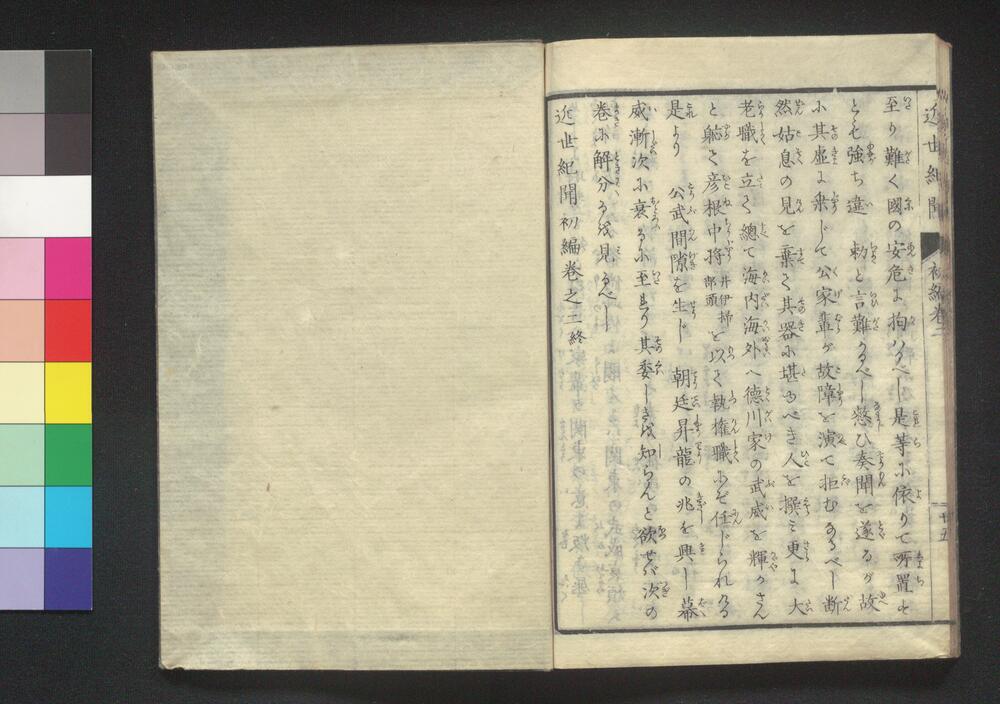 近世紀聞 初編巻二 二十五
至り難く國の安危に拘はるべし是等に依りて所置を
とも強ち違勅と言難かるべし憖ひ奏聞を遂るが故
に其虚に乗じて公家輩が故障を演て拒むあるべし断
然姑息の見を棄て其器に堪ゆべき人を撰ミ更に大
老職を立て總て海内海外へ徳川家の武威を輝かさん
と躰て彦根中将井伊掃部頭を以て執権職にぞ任じられける
是より 公武間隙を生じ 朝廷昇龍の兆を興し幕
威漸次に衰るに至より其委しきを知らんと欲せバ次の
巻に解分るを見るべし
近世紀聞初編巻之二終